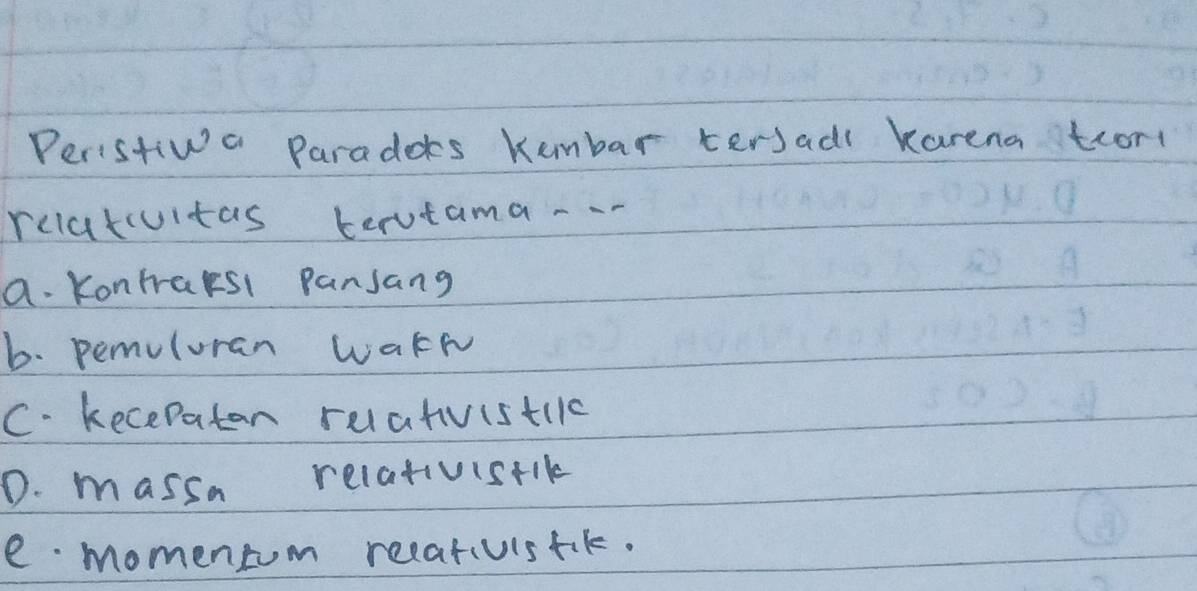 Peristiwa Paradoks Kembar terjadi karena teori
relativitas terutama ---
a. Kontraksi Panjang
b. pemuluran waktu
C. kecepatan relativistik
D. massa relativistik
e. momentum relativistik.